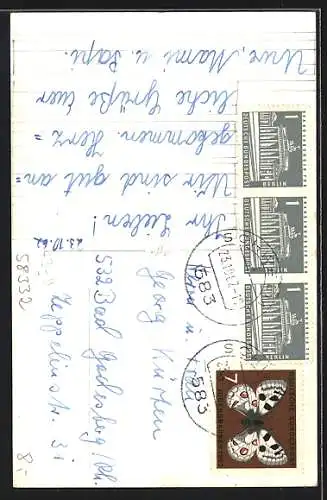 23.10.62
Ihr Lieben!
Wir sind gut an=
gekommen. Herz=
liche Grüße Euer
Uwe, Mami u. Papi.
u.
Georg Kürten
532 Bad Godesberg/Rh.
Zeppelinstr. 31
58332
8.-
583
583
23.10.62
1
DEUTSCHE BUNDESPOST
BERLIN
1
DEUTSCHE BUNDESPOST
BERLIN
1
BERLIN
7
DEUTSCHE BUNDESPOST